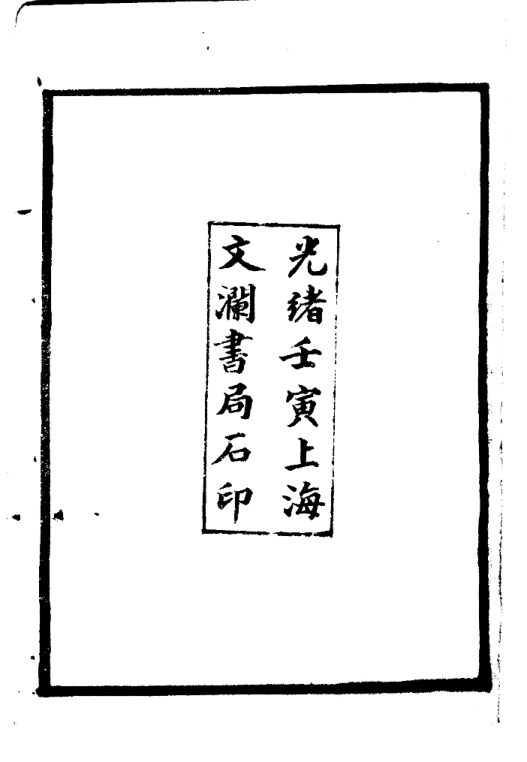 光緒壬寅上海
文瀾書局石印